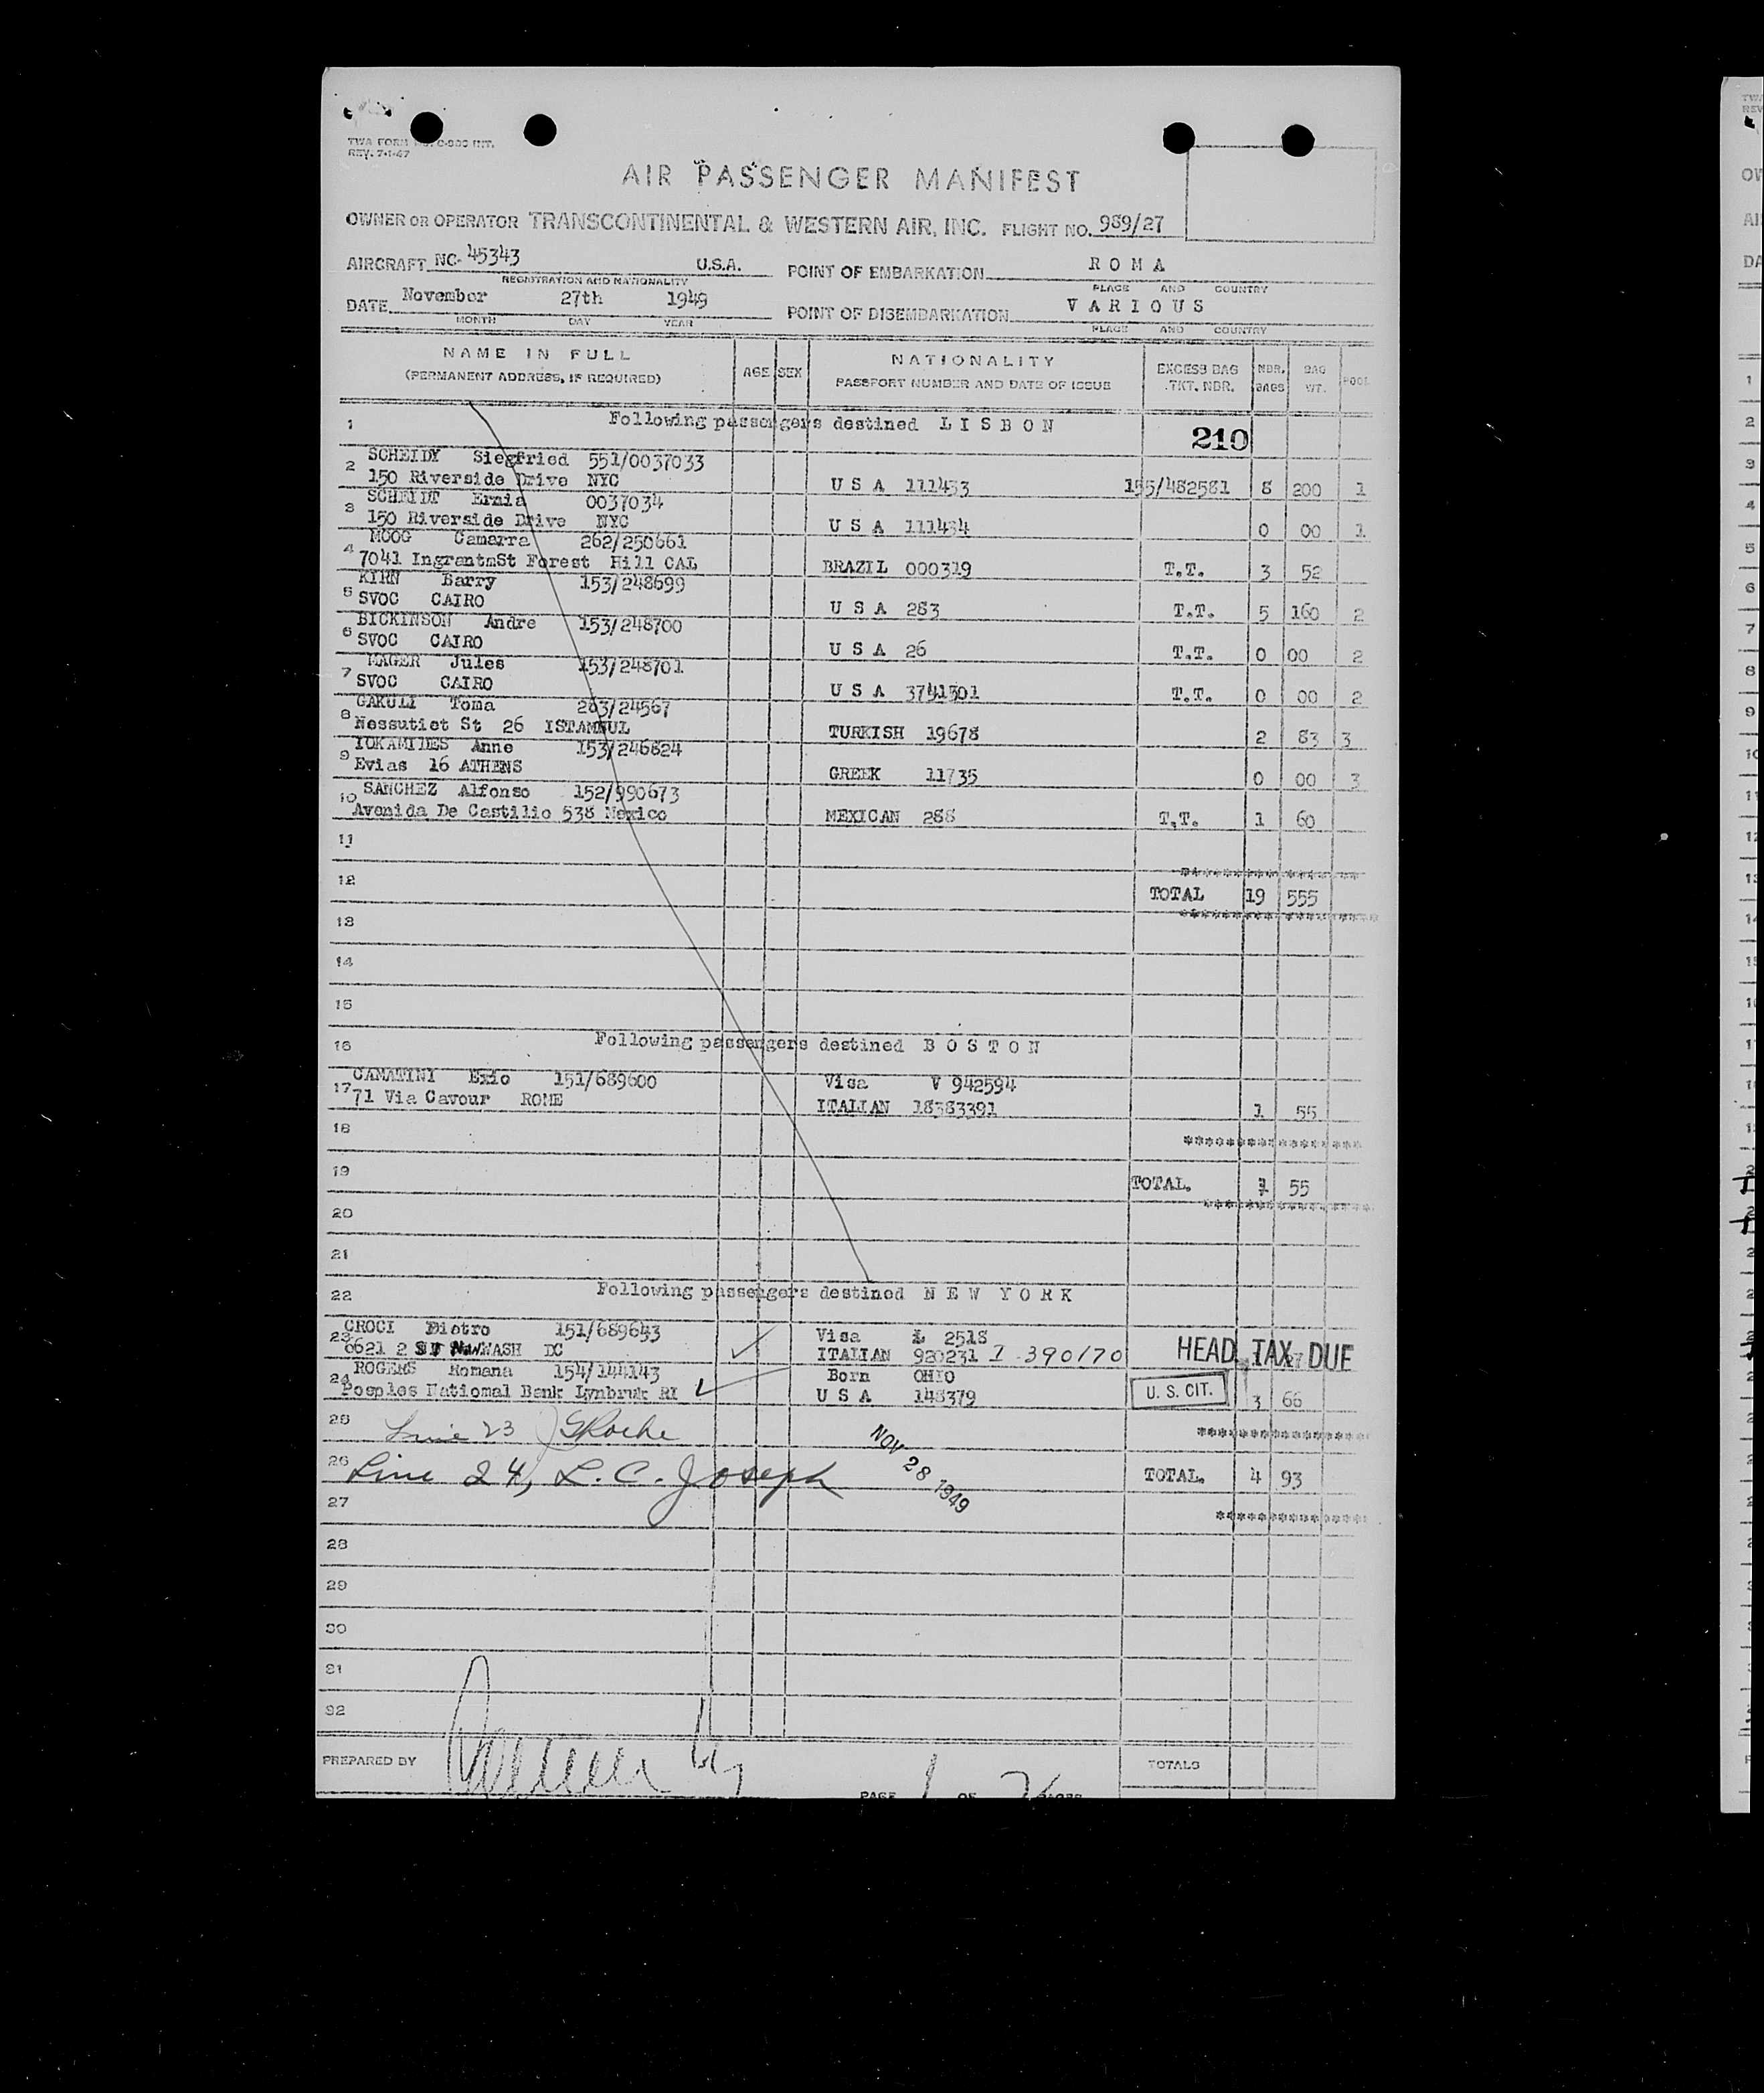 TWA FORM
REV. 7-1-47
AIR PASSENGER MANIFEST
OWNER OR OPERATOR TRANSCONTINENTAL & WESTERN AIR, INC. FLIGHT NO. 989/27
AIRCRAFT NC- 45343 U.S.A. POINT OF EMBARKATION R O M A
REGISTRATION AND NATIONALITY PLACE AND COUNTRY
DATE November 27th 1949 POINT OF DISEMBARKATION V A R I O U S
MONTH DAY YEAR PLACE AND COUNTRY
NAME IN FULL NATIONALITY EXCESS BAG NBR. BAG
(PERMANENT ADDRESS, IF REQUIRED) AGE SEX PASSPORT NUMBER AND DATE OF ISSUE TKT. NBR. BAGS WT. POOL
1 Following passengers destined L I S B O N 210
2 SCHEIDY Siegfried 551/0037033
150 Riverside Drive NYC U S A 111433 155/482581 8 200 1
3 SCHEIDT Ernia 0037034
150 Riverside Drive NYC U S A 111434 0 00 1
4 MOOG Camarra 262/250661
7041 IngrantmSt Forest Hill CAL BRAZIL 000319 T.T. 3 52
5 KIRN Barry 153/248699
SVOC CAIRO U S A 283 T.T. 5 160 2
6 BICKINSON Andre 153/248700
SVOC CAIRO U S A 26 T.T. 0 00 2
7 MAGER Jules 153/248701
SVOC CAIRO U S A 3741501 T.T. 0 00 2
8 GAKULI Toma 263/24567
Nessutiet St 26 ISTAMBUL TURKISH 19678 2 83 3
9 IOKAMIDES Anne 153/246824
Evias 16 ATHENS GREEK 11735 0 00 3
10 SANCHEZ Alfonso 152/990673
Avenida De Castilio 538 Mexico MEXICAN 288 T.T. 1 60
11
***************
12 TOTAL 19 555
*****************
13
14
15
16 Following passengers destined B O S T O N
17 CAMATINI Exio 151/689600 Visa V 942594
71 Via Cavour ROME ITALIAN 18383391 1 55
18 ***************
19 TOTAL. 1 55
***************
20
21
22 Following passengers destined N E W Y O R K
23 CROCI Dietro 151/689643 Visa L 2518
6621 2 WASH DC ITALIAN 920231 I-390170 HEAD TAX DUE
24 ROGERS Romana 154/144143 Born OHIO
Peoples National Bank Lynbruk RI U S A 148379 U. S. CIT. 3 66
25 Line 23 ***************
NOV 28 1949
26 Line 24, L. C. Joseph TOTAL. 4 93
27 ***************
28
29
30
31
32
PREPARED BY TOTALS
PAGE 1 OF 2 PAGES